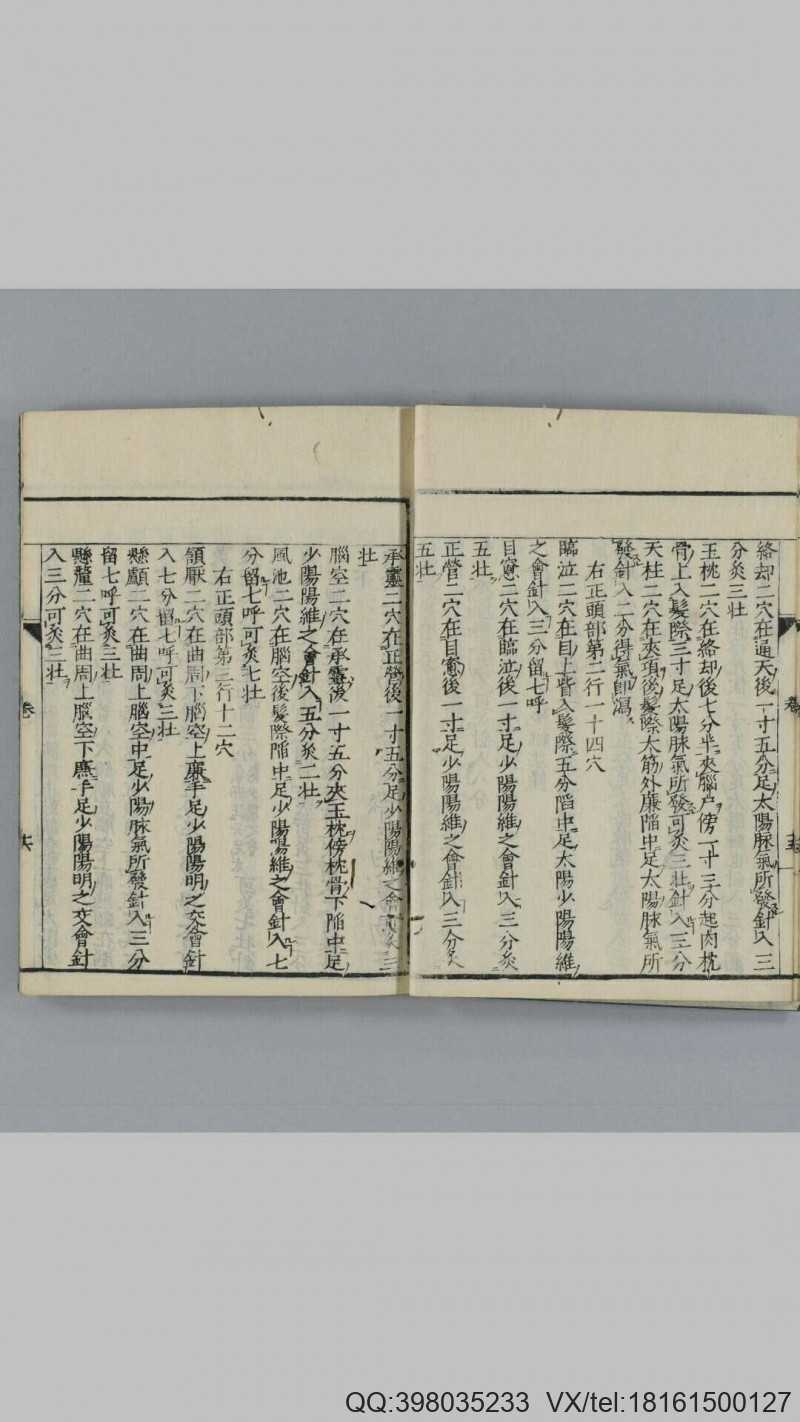 絡却二穴在通天後一寸五分足太陽脉氣所發針入三
分灸三壯
玉枕二穴在絡却後七分半夾腦戶傍一寸三分起肉枕
骨上入髮際三寸足太陽脉氣所發可灸三壯針入三分
天柱二穴在夾項後髮際大筋外廉陷中足太陽脉氣所
發針入二分得氣即瀉
右正頭部第二行一十四穴
臨泣二穴在目上眥入髮際五分陷中足太陽少陽陽維
之會針入三分留七呼
目窻二穴在臨泣後一寸足少陽陽維之會針入三分灸
五壯
正營二穴在目窻後一寸足少陽陽維之會針入三分灸
五壯
承靈二穴在正營後一寸五分足少陽陽維之會灸三
壯
腦空二穴在承靈後一寸五分夾玉枕傍枕骨下陷中足
少陽陽維之會針入五分灸二壯
風池二穴在腦空後髮際陷中足少陽陽維之會針入七
分留七呼可灸七壯
右正頭部第三行十二穴
頷厭二穴在曲周下腦空上廉手足少陽陽明之交會針
入七分留七呼可灸三壯
懸顱二穴在曲周上腦空中足少陽脉氣所發針入三分
留七呼可灸三壯
懸釐二穴在曲周上腦空下廉手足少陽陽明之交會針
入三分可灸三壯
卷
六
QQ:398035233 VX/tel:18161500127